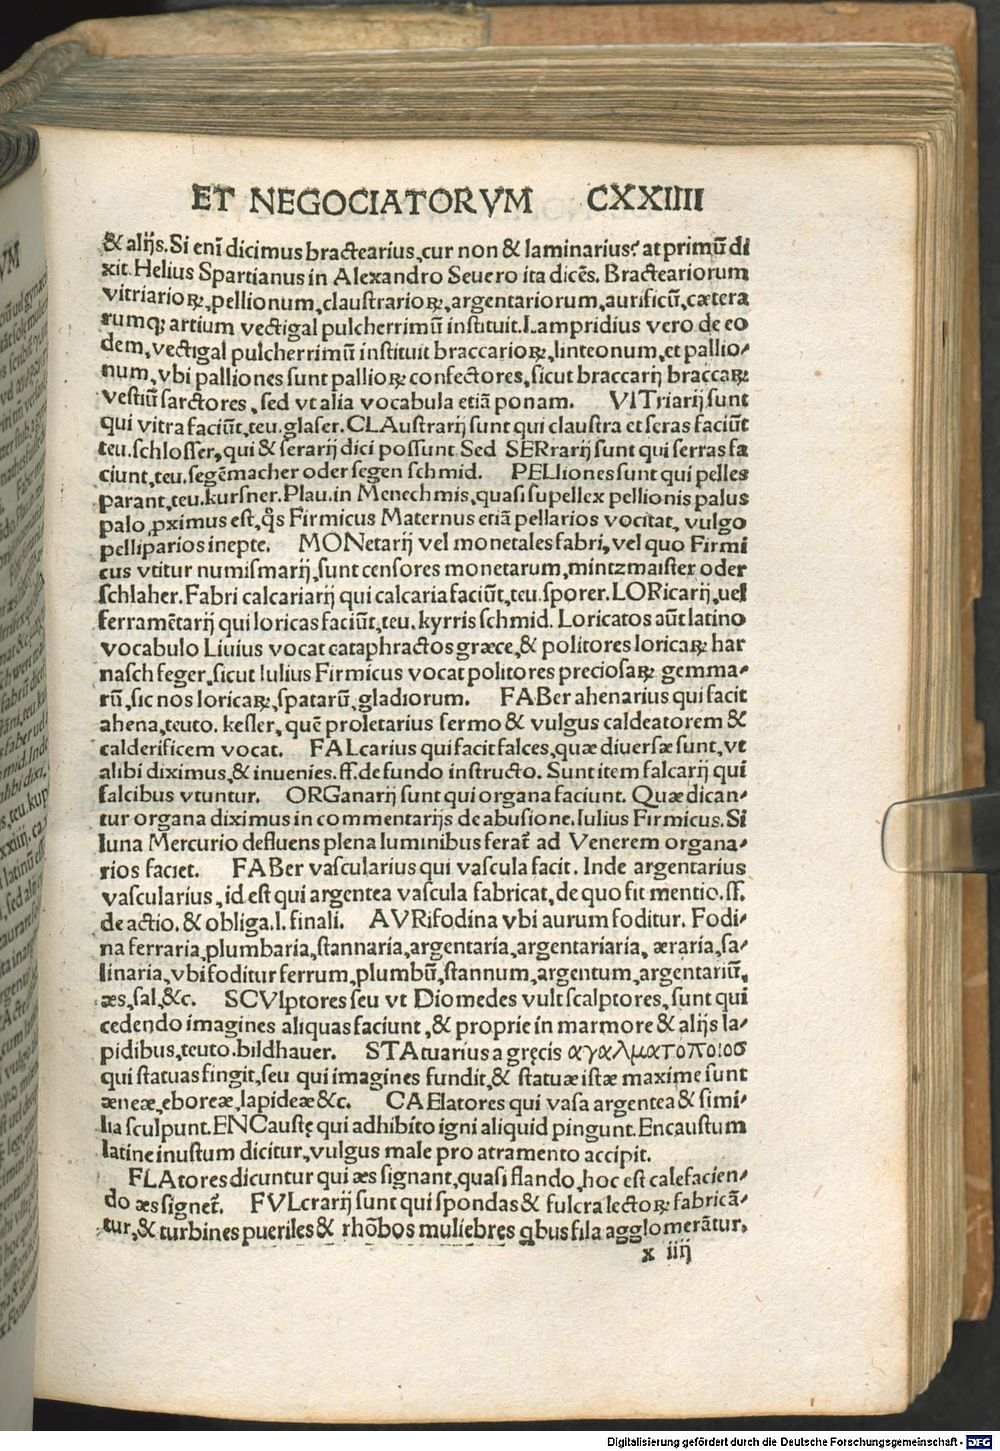 ET NEGOCIATORVM CXXIIII
& alijs. Si enī dicimus bractearius, cur non & laminarius? at primū di
xit Helius Spartianus in Alexandro Seuero ita dicēs. Bracteariorum
vitriarioꝝ, pellionum, claustrarioꝝ, argentariorum, aurificū, cætera
rumqꝫ artium vectigal pulcherrimū instituit. Lampridius vero de eo
dem, vectigal pulcherrimū instituit braccarioꝝ, linteonum, et pallio⸗
num, vbi palliones sunt pallioꝝ confectores, sicut braccarij braccaꝝ
vestiū sarctores, sed vt alia vocabula etiā ponam. VITriarij sunt
qui vitra faciūt, teu. glaser. CLAustrarij sunt qui claustra et seras faciūt
teu. schlosser, qui & serarij dici possunt Sed SERrarij sunt qui serras fa
ciunt, teu. segēmacher oder segen schmid. PELliones sunt qui pelles
parant, teu. kursner. Plau. in Menechmis, quasi supellex pellionis palus
palo ꝓximus est, qͦs Firmicus Maternus etiā pellarios vocitat, vulgo
pelliparios inepte. MONetarij vel monetales fabri, vel quo Firmi
cus vtitur numismarij, sunt censores monetarum, mintzmaister oder
schlaher. Fabri calcariarij qui calcaria faciūt, teu. sporer. LORicarij, uel
ferramētarij qui loricas faciūt, teu. kyrris schmid. Loricatos aūt latino
vocabulo Liuius vocat cataphractos græce, & politores loricaꝝ har
nasch feger, sicut Iulius Firmicus vocat politores preciosaꝝ gemma⸗
rū, sic nos loricaꝝ, spatarū, gladiorum. FABer ahenarius qui facit
ahena, teuto. kesler, quē proletarius sermo & vulgus caldeatorem &
calderificem vocat. FALcarius qui facit falces, quæ diuersæ sunt, vt
alibi diximus, & inuenies. ff. de fundo instructo. Sunt item falcarij qui
falcibus vtuntur. ORGanarij sunt qui organa faciunt. Quæ dican⸗
tur organa diximus in commentarijs de abusione. Iulius Firmicus. Si
luna Mercurio defluens plena luminibus ferat̄ ad Venerem organa⸗
rios faciet. FABer vascularius qui vascula facit. Inde argentarius
vascularius, id est qui argentea vascula fabricat, de quo fit mentio. ff.
de actio. & obliga. l. finali. AVRifodina vbi aurum foditur. Fodi⸗
na ferraria, plumbaria, stannaria, argentaria, argentariaria, æraria, sa⸗
linaria, vbi foditur ferrum, plumbū, stannum, argentum, argentariū,
æs, sal, &c. SCVlptores seu vt Diomedes vult scalptores, sunt qui
cedendo imagines aliquas faciunt, & proprie in marmore & alijs la⸗
pidibus, teuto. bildhauer. STAtuarius a gręcis αγαλματοποιοσ
qui statuas fingit, seu qui imagines fundit, & statuæ istæ maxime sunt
æneæ, eboreæ, lapideæ &c. CAElatores qui vasa argentea & simi⸗
lia sculpunt. ENCaustę qui adhibito igni aliquid pingunt. Encaustum
latine inustum dicitur, vulgus male pro atramento accipit.
FLAtores dicuntur qui æs signant, quasi flando, hoc est calefacien⸗
do æs signet̄. FVLcrarij sunt qui spondas & fulcra lectoꝝ fabricā⸗
tur, & turbines pueriles & rhōbos muliebres qbus fila agglomerātur,
x iiij
Digitalisierung gefördert durch die Deutsche Forschungsgemeinschaft - DFG